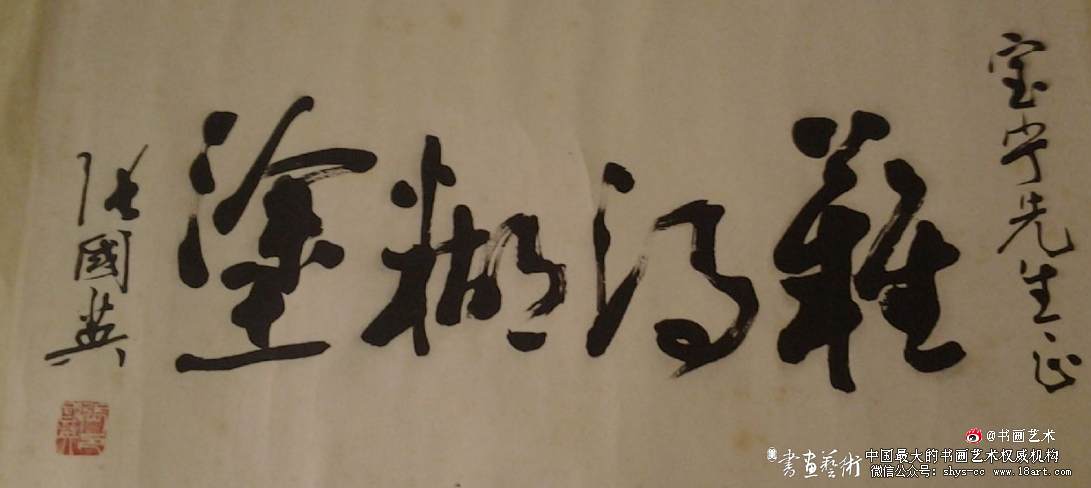 宝宁先生正
難得糊塗
张國英
@书画艺术
書画藝術
中国最大的书画艺术权威机构
微信公众号: shys-cc www.18art.com